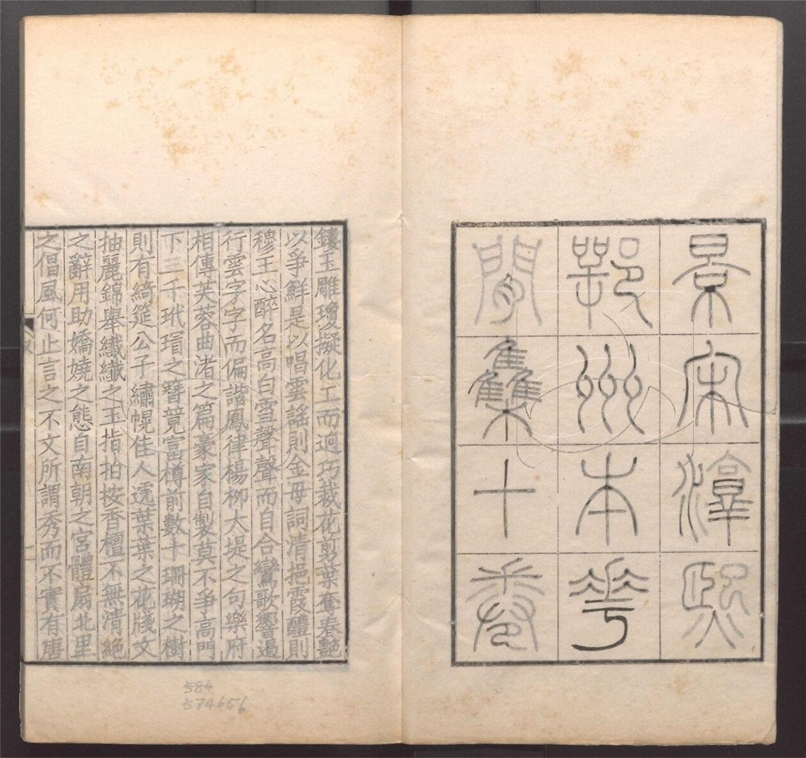 景宋淳熙
鄂州本花
間集十卷
鏤玉雕瓊擬化工而迥巧裁花剪葉奪春豔
以爭鮮是以唱雲謠則金母詞清挹霞醴則
穆王心醉名高白雪聲聲而自合鸞歌響遏
行雲字字而偏諧鳳律楊柳大堤之句樂府
相傳芙蓉曲渚之篇豪家自製莫不爭高門
下三千玳瑁之簪競富樽前數十珊瑚之樹
則有綺筵公子繡幌佳人遞葉葉之花牋文
抽麗錦舉纖纖之玉指拍按香檀不無清絕
之辭用助嬌嬈之態自南朝之宮體扇北里
之倡風何止言之不文所謂秀而不實有唐
584
574656